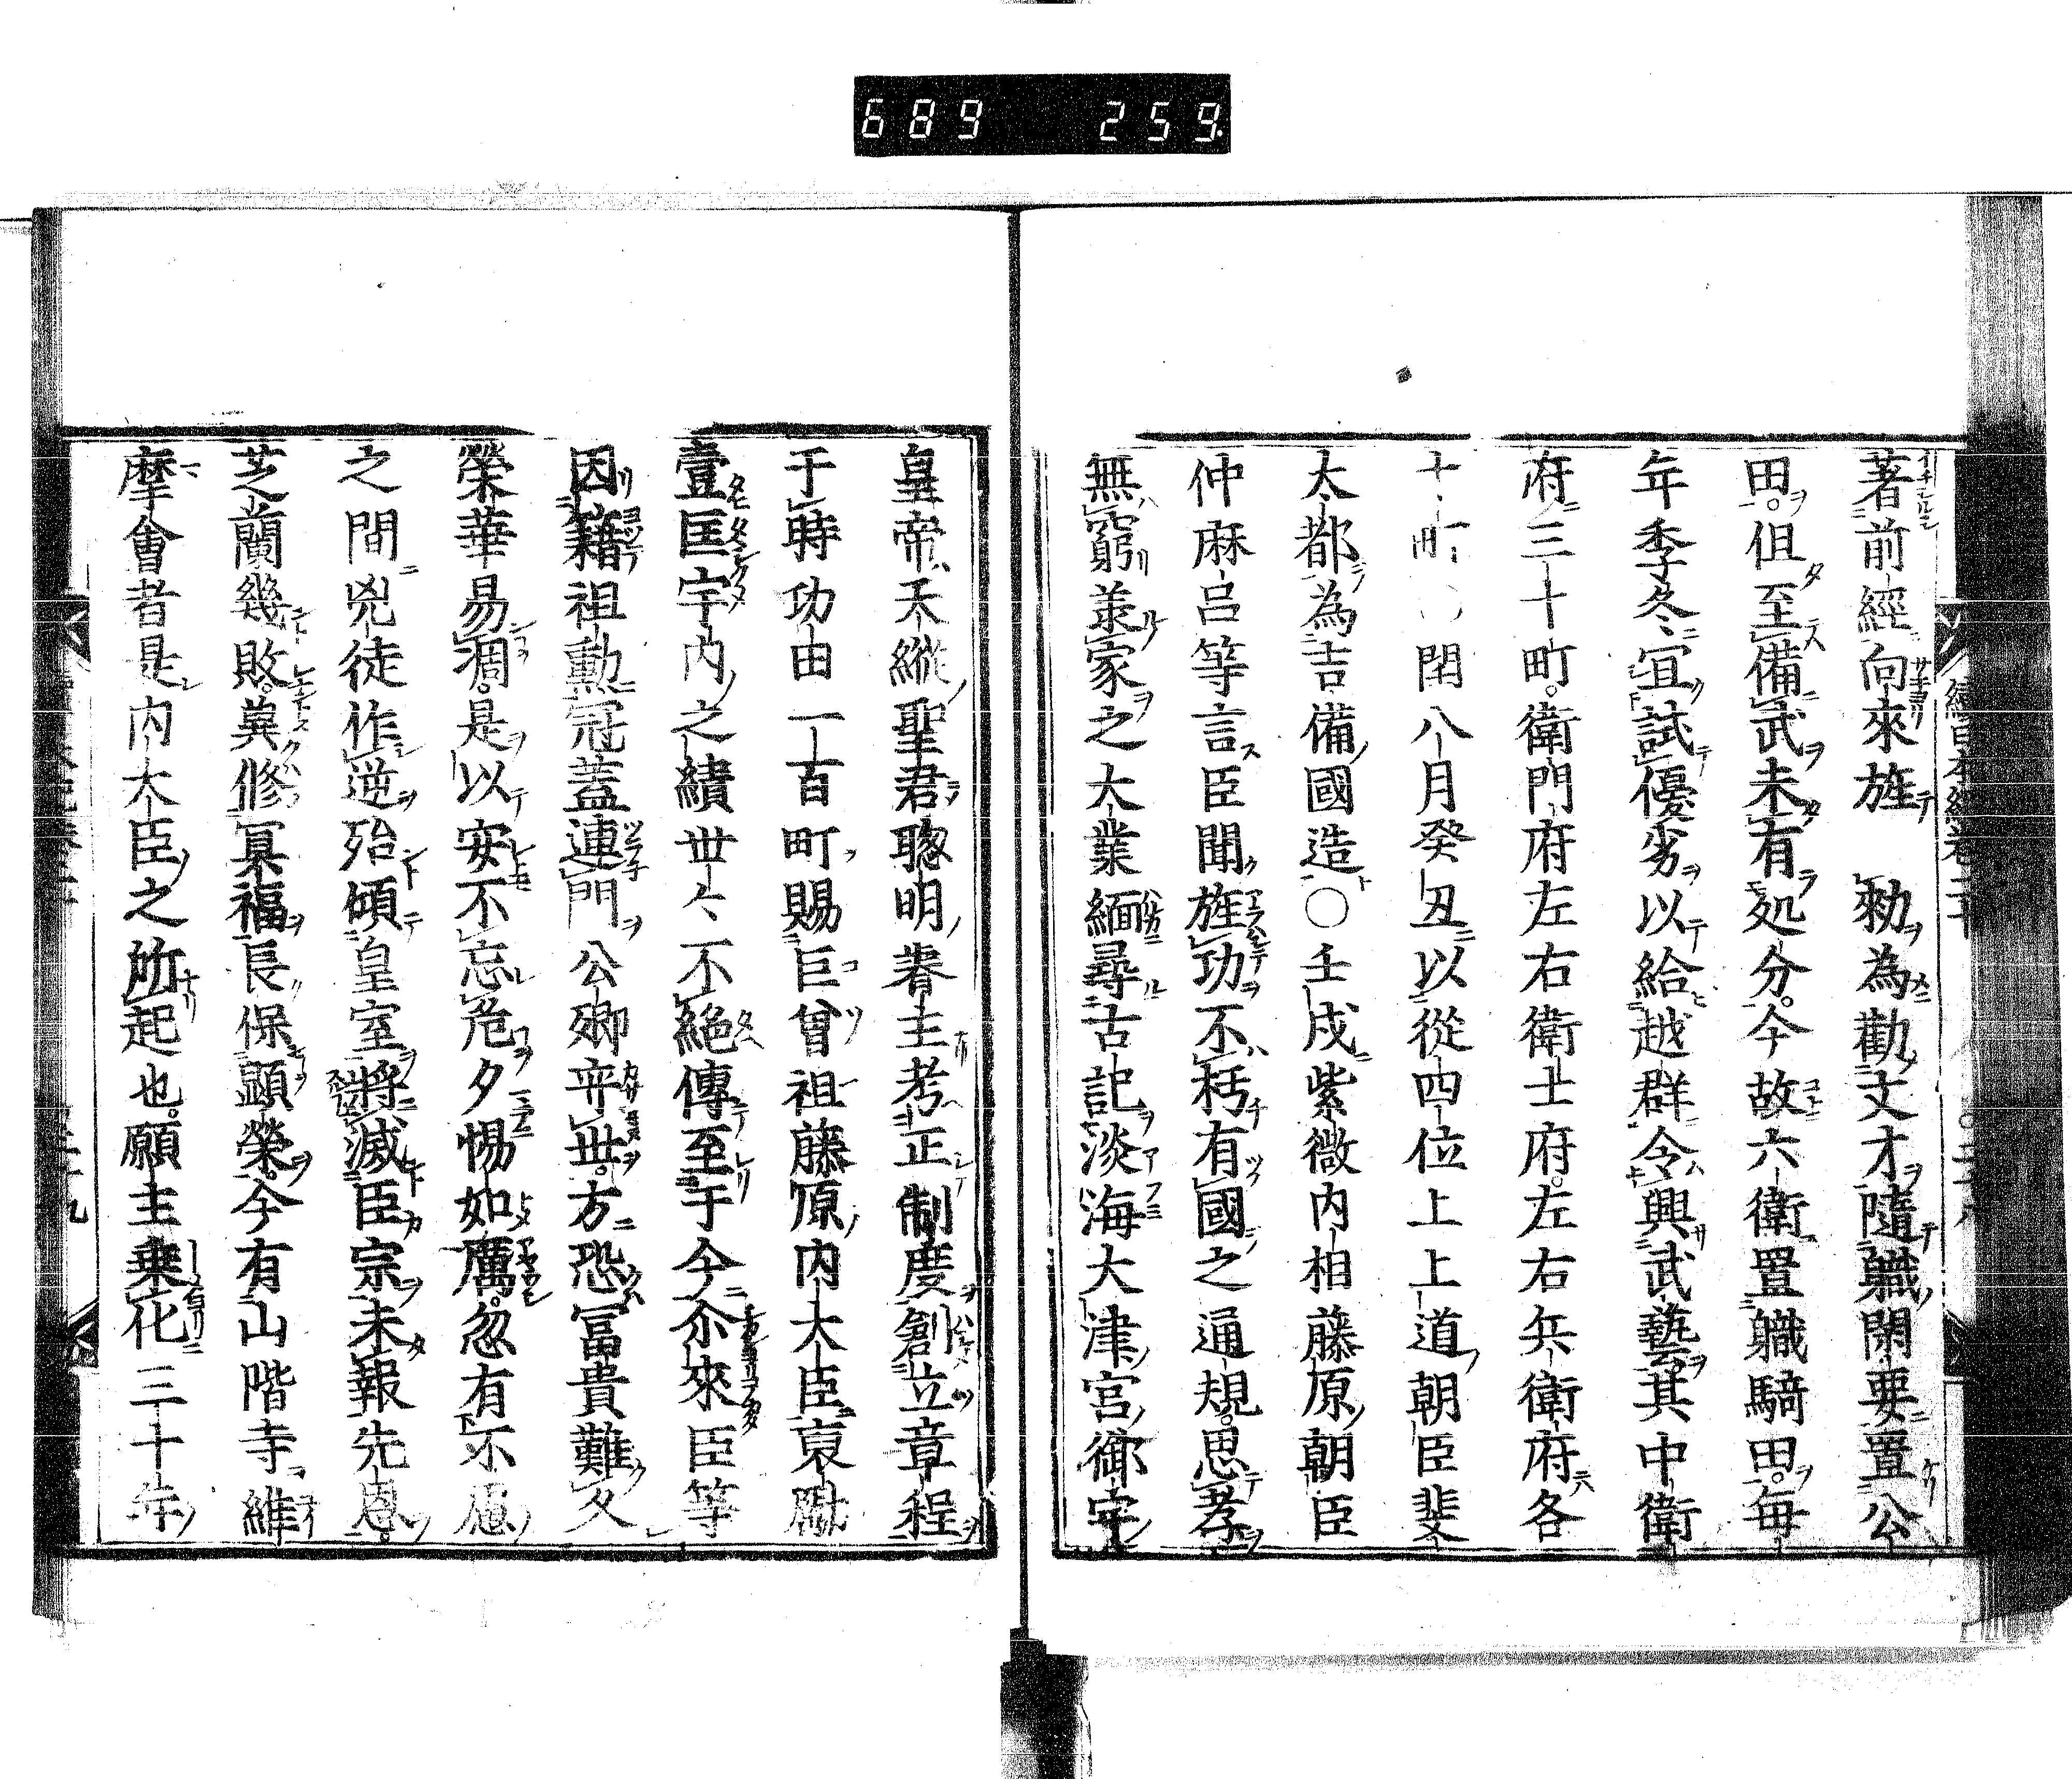 689 259
續日本紀卷二十
著前經向來旌　勅為勸文才隨職閑要置公
田。但至備武未有処分。今故六衛置職騎田。每
年季冬宜試優劣以給越群令興武藝其中衛
府三十町。衛門府左右衛士府。左右兵衛府各
十町〇閏八月癸丑以從四位上上道朝臣斐
太都為吉備國造〇壬戌紫微内相藤原朝臣
仲麻呂等言臣聞旌功不朽有國之通規。思孝
無窮羕家之大業緬尋古記淡海大津宮御宇
皇帝天縱聖君聡明睿主考正制度創立章程
于時功由一百町賜臣曾祖藤原内大臣襃勵
壹匡宇内之績世々不絶傳至于今尒來臣等
因籍祖勲冠蓋連門公卿奕世。方恐冨貴難久
榮華易凋。是以安不忘危夕惕如厲。忽有不慮
之間兇徒作逆殆傾皇室將滅臣宗未報先恩。
芝蘭幾敗。冀修冥福長保顕榮。今有山階寺維
摩會者是内大臣之所起也。願主乗化三十年